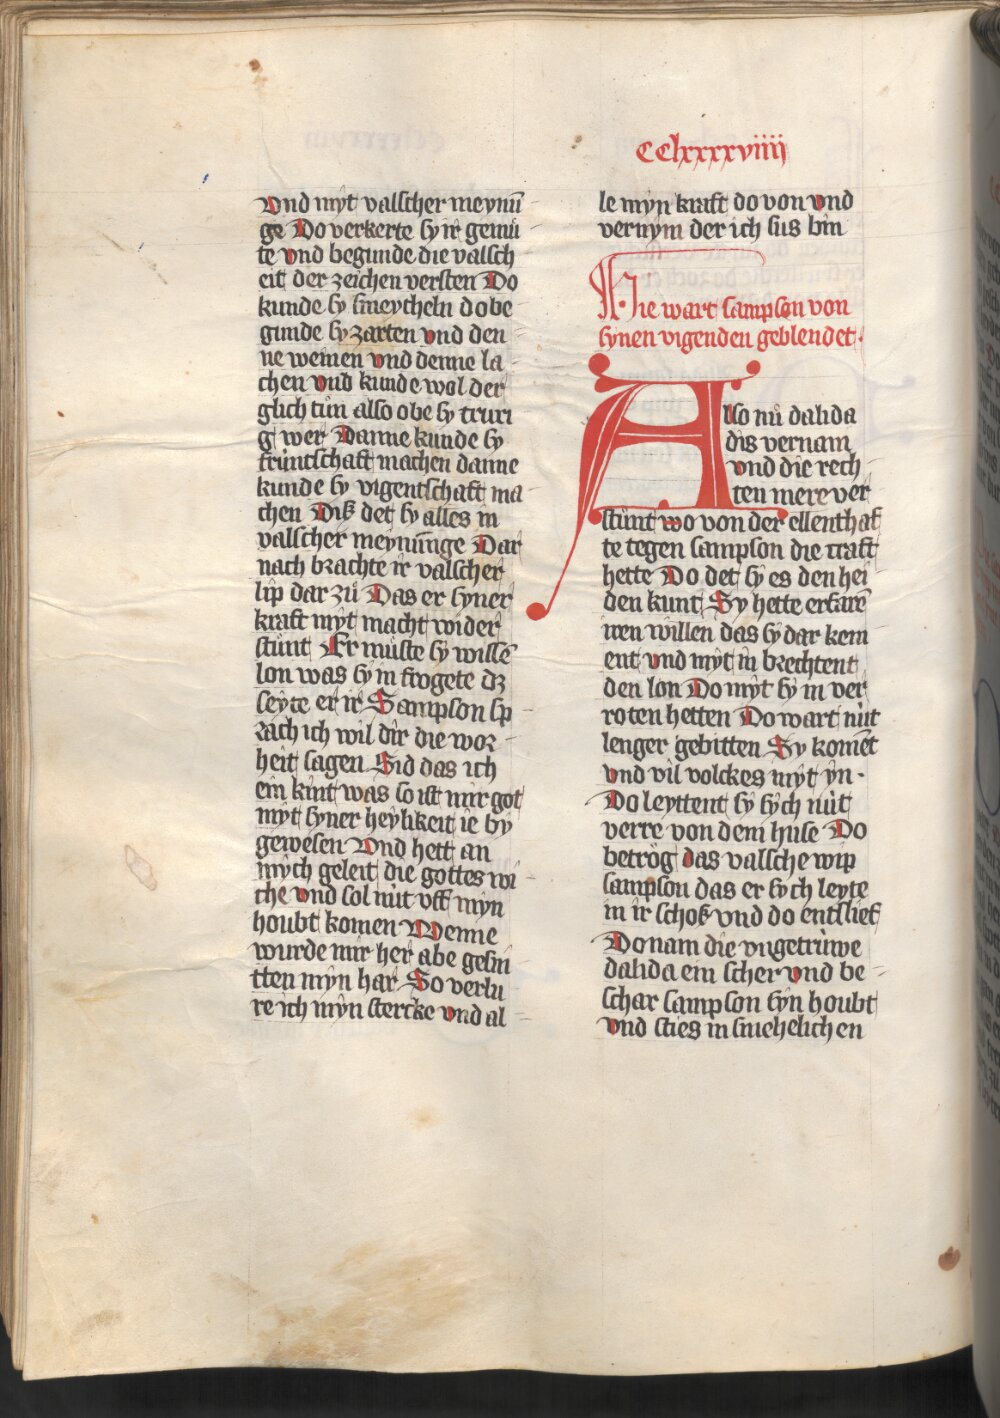 CClxxxxviiii
vnd myt valscher meynū
ge Do verkerte sy ir gemū
te vnd begunde die valsch
eit der zeichen versten Do
kunde sy smeycheln do be
gunde sy zarten vnd den
ne weinen vnd denne la
chen vnd kunde wol der
glich tůn also obe sy truri
g wer Danne kunde sy
frùntschaft machen danne
kunde sy vigentschaft ma
chen Diß det sy alles in
valscher meynūnge Dar
nach brachte ir valscher
lip dar zů Das er syner
kraft myt macht wider
stůnt Er můste sy wissē
lon was sy in frogete dz
seyte er ir Sampson sp
rach ich wil dir die wor
heit sagen Sid das ich
ein kint was so ist mir got
myt syner heylikeit ie by
gewesen Vnd hett an
mych geleit die gottes wi
che vnd sol nùt vff myn
houbt komen Wenne
wurde mir her abe gesni
tten myn har So verlu
re ich myn stercke vnd al
le myn kraft do von vnd
vernym der ich sus bin
Hie wart sampson von
synen vigenden geblendet
Also nů dalida
dis vernam
vnd die rech
ten mere ver
stůnt wo von der ellenthaf
te tegen sampson die craft
hette Do det sy es den hei
den kunt Sy hette erfarē
iren willen das sy dar kem
ent vnd myt in brechtent
den lon Do myt sy in ver
roten hetten Do wart nùt
lenger gebitten Sy komēt
vnd vil volckes myt yn
Do leyttent sy sych nùt
verre von dem huse Do
betrog das valsche wip
sampson das er sych leyte
in ir schoß vnd do entslief
Do nam die vngetrùwe
dalida ein scher vnd be
schar sampson syn houbt
vnd sties in smehelichen